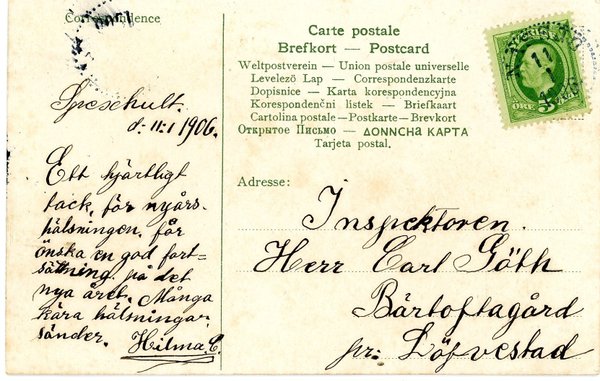 Correspondence
Carte postale
Brefkort — Postcard
Weltpostverein — Union postale universelle
Levelező Lap — Correspondenzkarte
Dopisnice — Karta korespondencyjna
Korespondenční listek — Briefkaart
Cartolina postale — Postkarte — Brevkort
Открытое Письмо — ΔΟΝΝCHA ΚΑΡΤΑ
Tarjeta postal.
ÖRE
d. 11:1 1906.
Ett hjärtligt
tack, för nyårs-
hälsningen, får
önska en god fort=
sättning på det
nya året. Många
kära hälsningar
sänder. Hilma. C.
Adresse:
Inspektoren.
Herr Carl Göth
Bärtoftagård
pr: Löfvestad